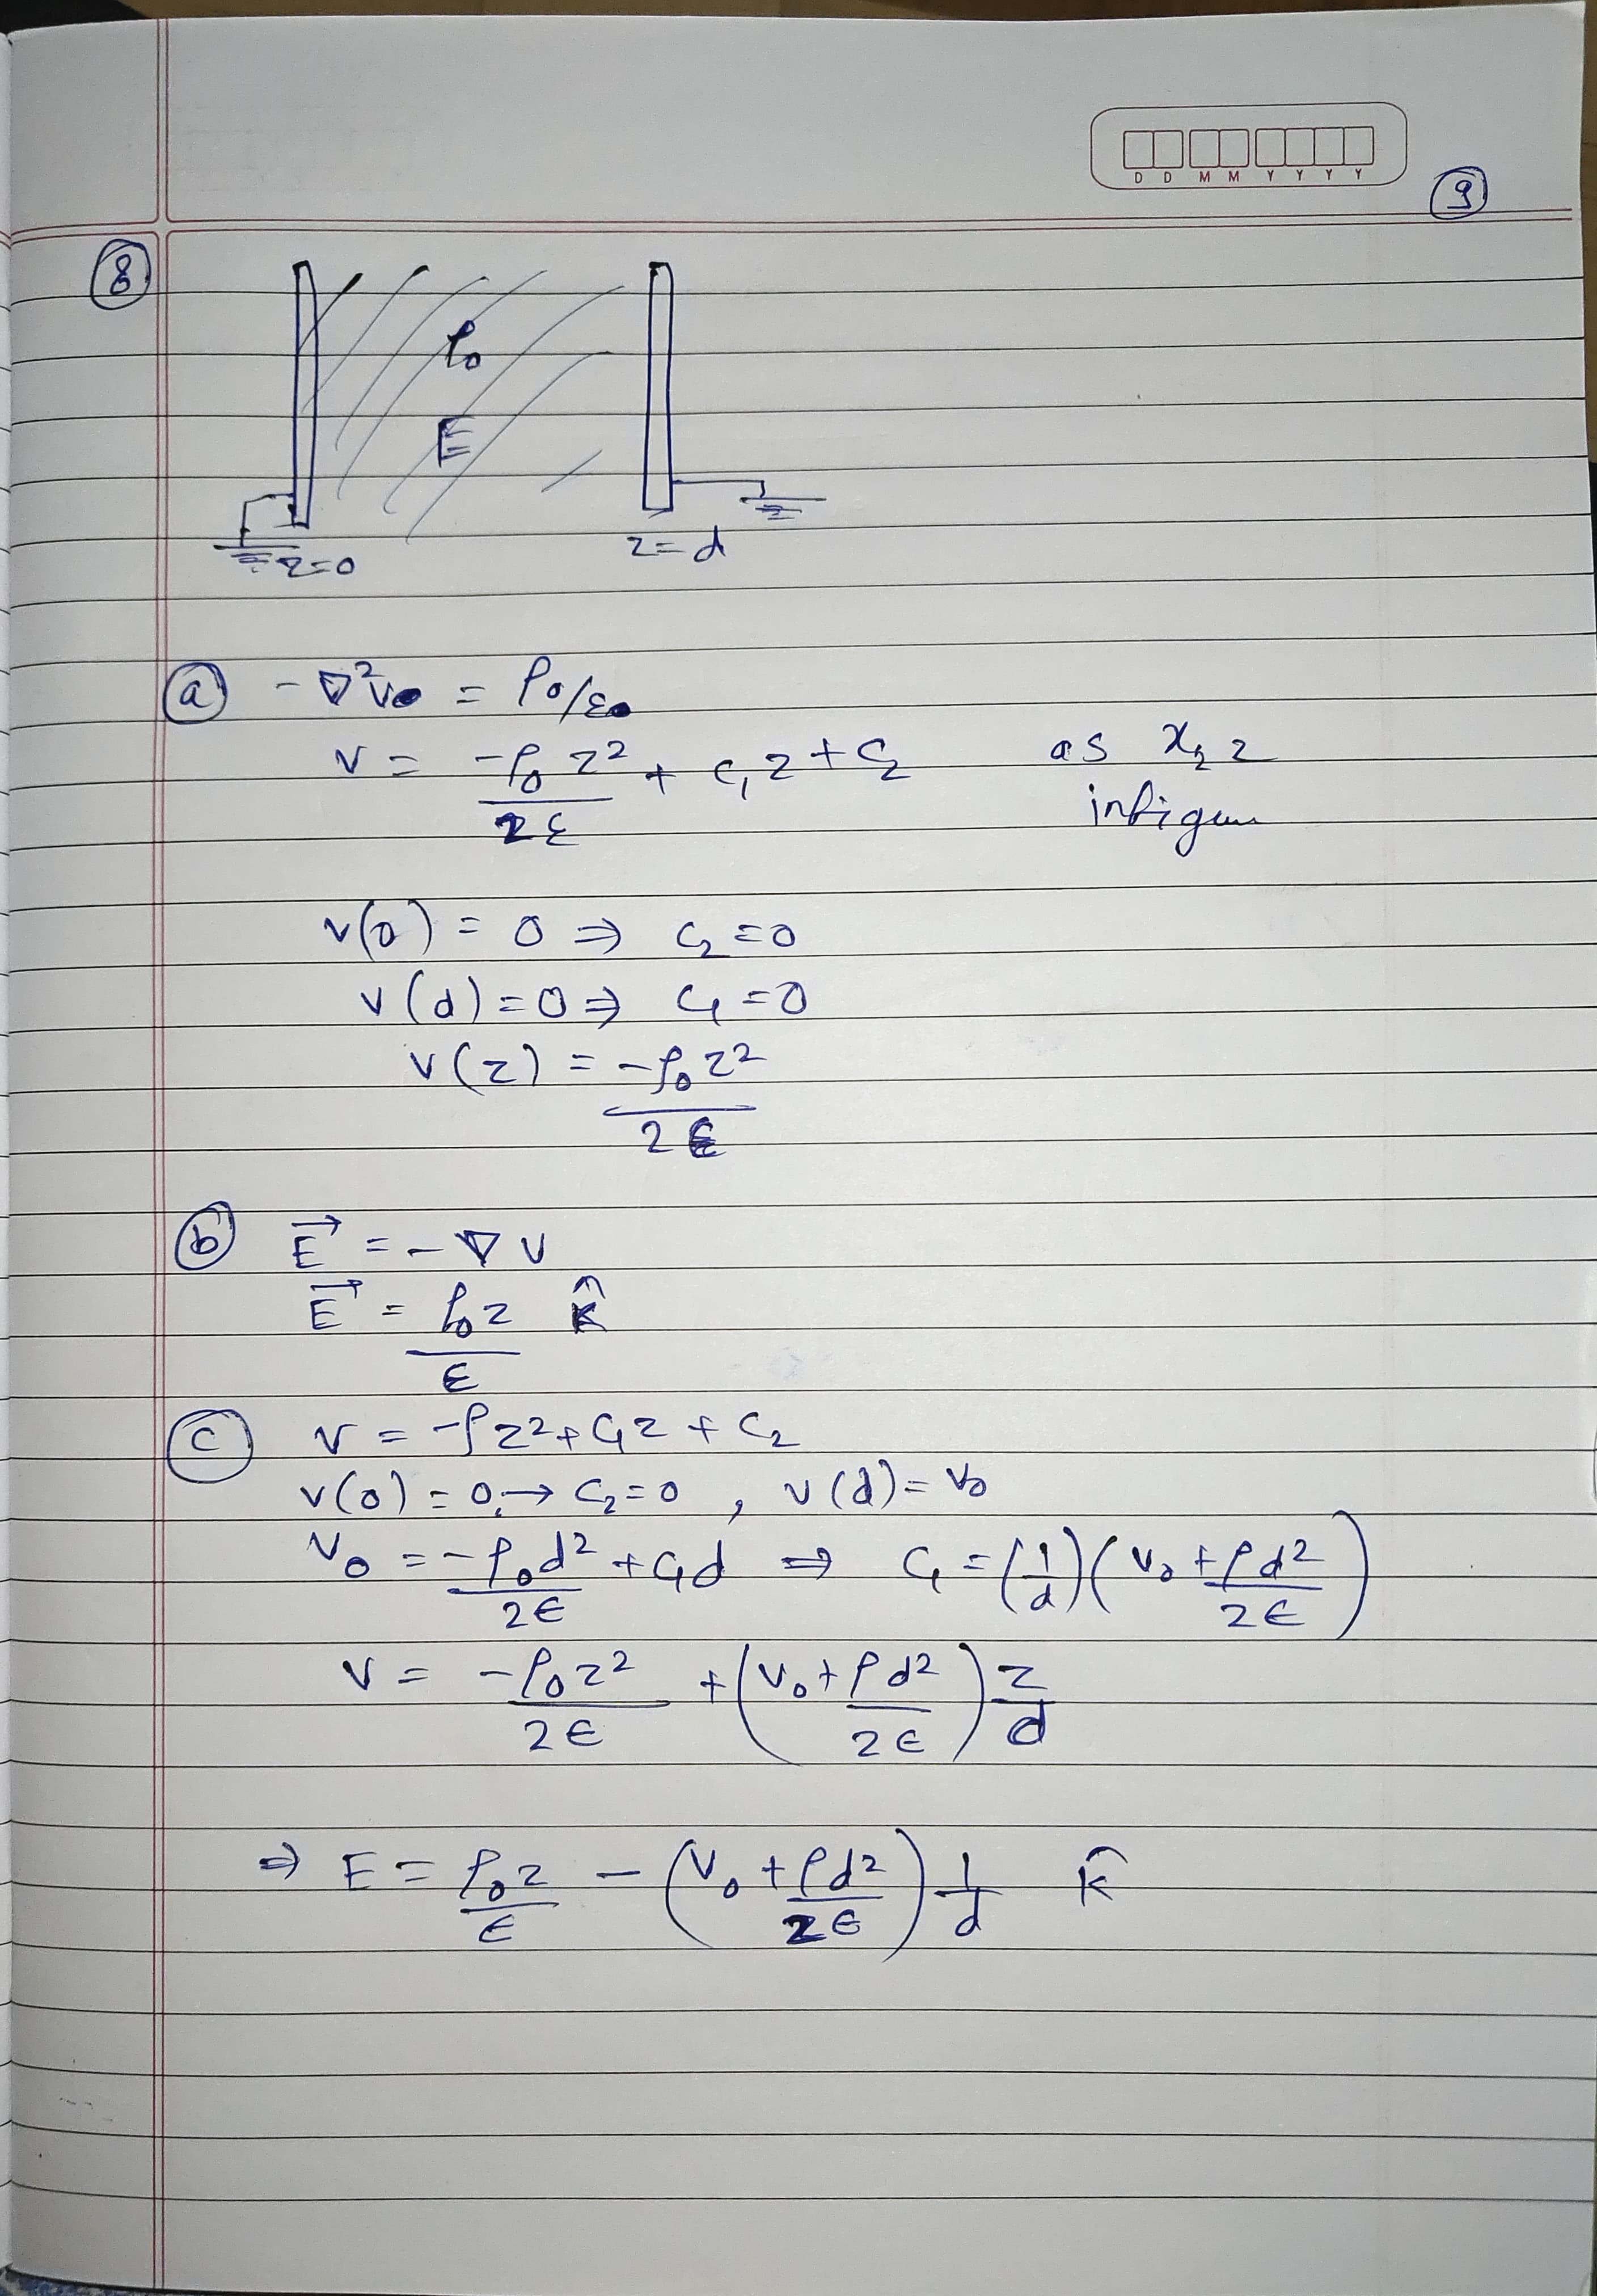 D D M M Y Y Y Y
9
8
ρ₀
E
z=0
z=d
a -∇²V = ρ₀/ε
V = -ρ₀z²/2ε + C₁z + C₂ as x, z
V(0) = 0 ⇒ C₂ = 0
V(d) = 0 ⇒ C₁ = 0
V(z) = -ρ₀z²/2ε
b E⃗ = -∇V
E⃗ = ρ₀z/ε k̂
c V = -ρz² + C₁z + C₂
V(0) = 0 → C₂ = 0, V(d) = V₀
V₀ = -ρ₀d²/2ε + C₁d ⇒ C₁ = (1/d)(V₀ + ρd²/2ε)
V = -ρ₀z²/2ε + (V₀ + ρd²/2ε) z/d
⇒ E = ρ₀z/ε - (V₀ + ρd²/2ε) 1/d k̂